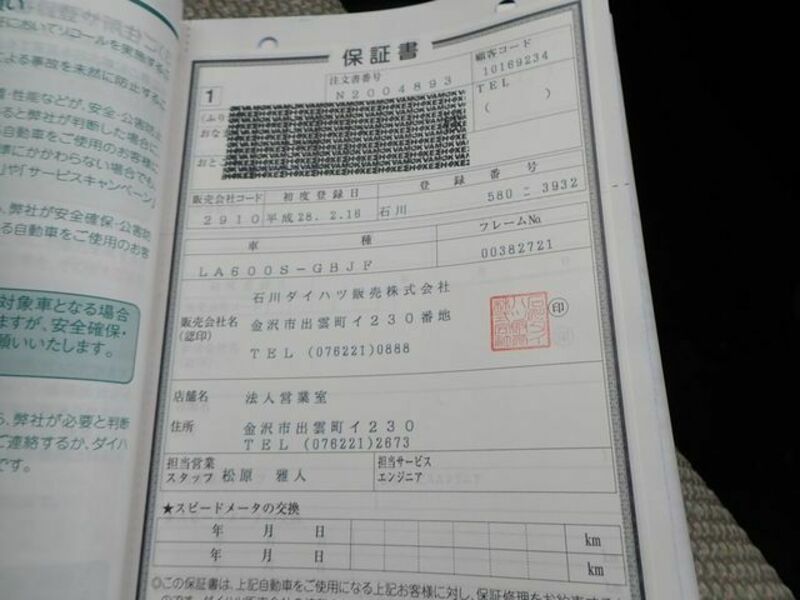 においてリコールを実施するに
よる事故を未然に防止するに
性能などが、安全・公害防止
ると弊社が判断した場合に
自動車をご使用のお客様に
準にかかわらない場合でも、
」や「サービスキャンペーン」
、弊社が安全確保・公害防
る自動車をご使用のお客
対象車となる場合
ますが、安全確保・
願いいたします。
ら、弊社が必要と判断
ご連絡するか、ダイハ
です。
保証書
1
注文書番号
N2004893
顧客コード
10169234
TEL
( )
様
販売会社コード 初度登録日 登録番号
2910 平成28.2.16 石川 580 こ 3932
車種 フレームNo.
LA600S-GBJF 00382721
石川ダイハツ販売株式会社
販売会社名 金沢市出雲町イ230番地 印
(認印)
TEL (076221)0888
店舗名 法人営業室
住所 金沢市出雲町イ230
TEL (076221)2673
担当営業 担当サービス
スタッフ 松原 雅人 エンジニア
★スピードメータの交換
年 月 日 km
年 月 日 km
◎この保証書は、上記自動車をご使用になる上記お客様に対し、保証修理をお約束する